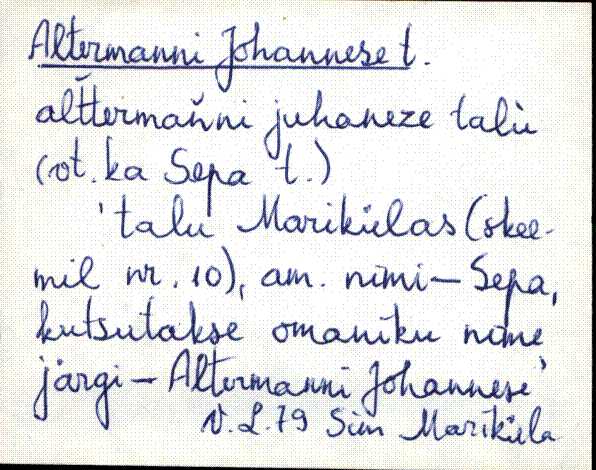 Altermanni Johannese t.
al̆ttermań̆ni juhaneze talù
(vt. ka Sepa t.)
'talu Mariküla​s (skee-
mil nr. 10), am. nimi – Sepa,
kutsutakse omaniku nime
järgi – Altermanni Johannese'
V. L. 79 Sim Mariküla